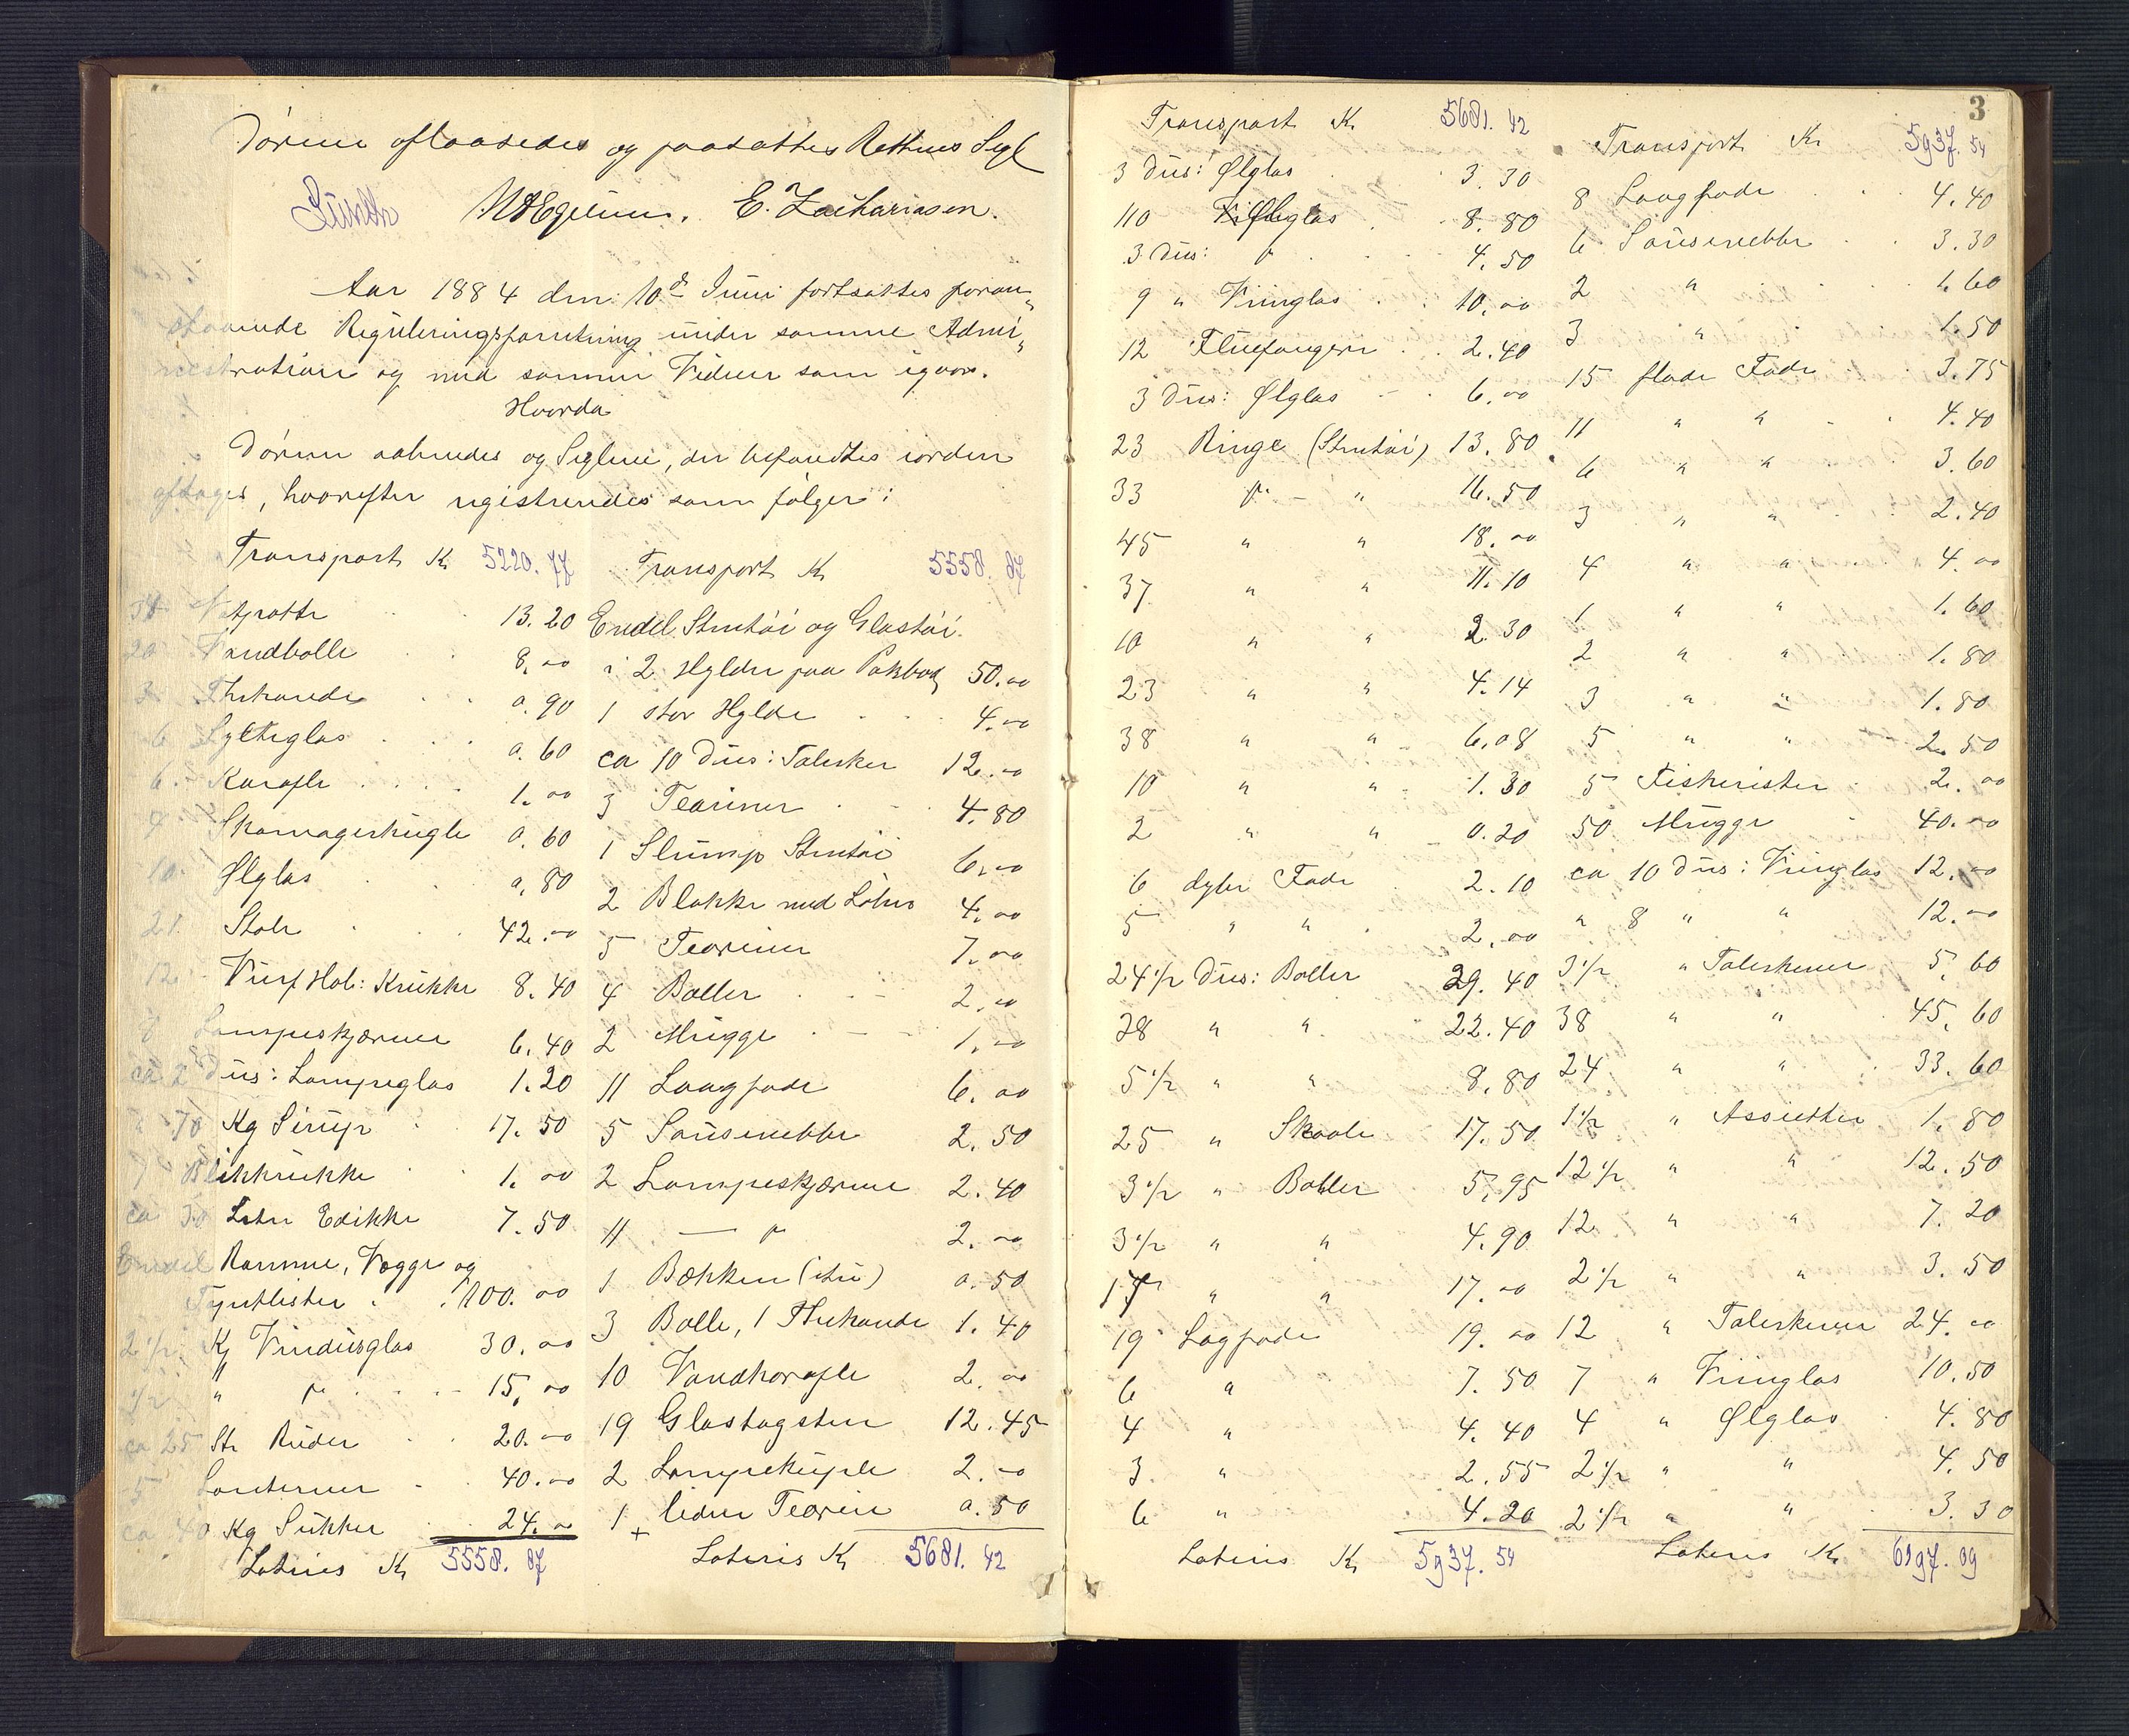 Dörene aflaasedes og paasattes Rettens Segl
NHEgelund. E. Zachariasen.
Aar 1884 den 10de Juni fortsattes foran„
staaende Reguleringsforretning under samme Admi„
nistration og med samme Vidner som igaar.
Hvorda
Dörene aabnedes og Seglene, der befandtes iorden
aftoges, hvorefter registreredes som fölger:
Transport Kr 5220.77
Natpotte 13.20
20 Vandbolle 8.00
3 Thekande 0.90
6 Sylteglas 0.60
6 Karafle 1.00
Skomagerkugle 0.60
10 Ølglas 0.80
21 Stole 42.00
12 Krukke 8.40
8 Lampeskjærme 6.40
ca 2 Dus: Lampeglas 1.20
70 Kg Sirup 17.50
7 Blikkrukke 1.00
ca 30 Liter Edikke 7.50
Endel Ramme, Vægge og
Pyntlister 100.00
2 1/2 Kj Vinduesglas 30.00
1/2 " " 15.00
ca 25 St Ruder 20.00
5 Lanterner 40.00
ca 40 Kg Sukker 24.00
Lateris Kr 5558.87
Transport Kr 5558.87
Endel Stentöi og Glastöi
i 2 Hylder paa Pakbod 50.00
1 stor Hylde 4.00
ca 10 Dus: Talerker 12.00
3 Teariner 4.80
1 Slump Stentöi 6.00
2 Blakke med Löber 4.00
5 Teariner 7.00
4 Boller 2.00
2 Mugge 1.00
11 Laagfade 6.00
5 Sausenebbe 2.50
2 Lampeskjærme 2.40
11 — " 2.00
1 Bækken (itu) 0.50
3 Bolle, 1 Thekande 1.40
10 Vandkarafle 2.00
19 Glastagsten 12.45
2 Lampekuple 2.00
1 liden Tearin 0.50
Lateris Kr 5681.42
3
Transport Kr 5681.42
3 Dus: Ølglas 3.30
110 Ølglas 8.80
3 Dus: " 4.50
9 " Vinglas 10.00
12 Fluefangere 2.40
3 Dus: Ølglas 6.00
23 Ringe (Stentöi) 13.80
33 " - " 16.50
45 " " 18.00
37 " " 11.10
10 " " 2.30
23 " " 4.14
38 " " 6.08
10 " " 1.30
2 " " 0.20
6 dybe Fade 2.10
5 " " 2.00
24 1/2 Dus: Boller 29.40
28 " " 22.40
5 1/2 " " 8.80
25 " Skaale 17.50
3 1/2 " Boller 5.95
3 1/2 " " 4.90
17 " " 17.00
19 Lagfade 19.00
6 " 7.50
4 " 4.40
3 " 2.55
6 " 4.20
Lateris Kr 5937.54
Transport Kr 5937.54
8 Laagfade 4.40
6 Sausenebbe 3.30
2 " 1.60
3 " 1.50
15 flade Fade 3.75
11 " " 4.40
6 " " 3.60
3 " " 2.40
4 " " 4.00
1 " " 1.60
2 " " 1.80
3 " " 1.80
5 " " 2.50
5 Fiskerister 2.00
50 Mugge 40.00
ca 10 Dus: Vinglas 12.00
" 8 " " 12.00
3 1/2 " Talerkener 5.60
38 " " 45.60
24 " " 33.60
1 1/2 " Assietter 1.80
12 1/2 " " 12.50
12 " " 7.20
2 1/2 " " 3.50
12 " Talerkener 24.00
7 " Vinglas 10.50
4 " Ølglas 4.80
2 1/2 " " 4.50
2 1/2 " " 3.30
Lateris Kr 6197.09